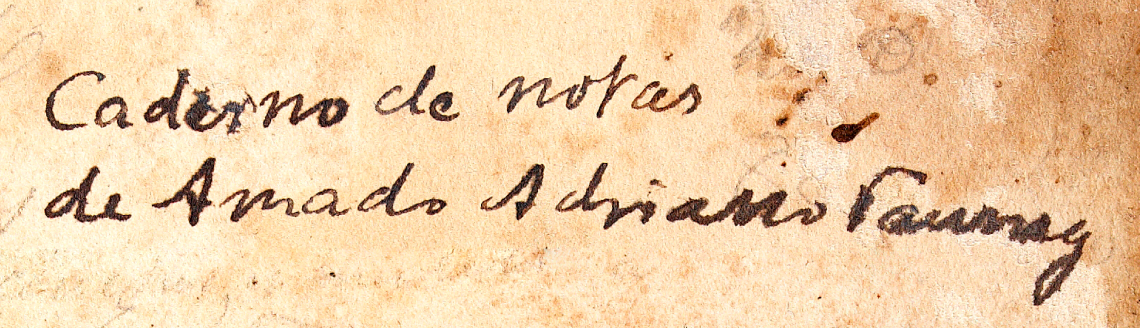 Caderno de notas
de Amado Adriano Taunay